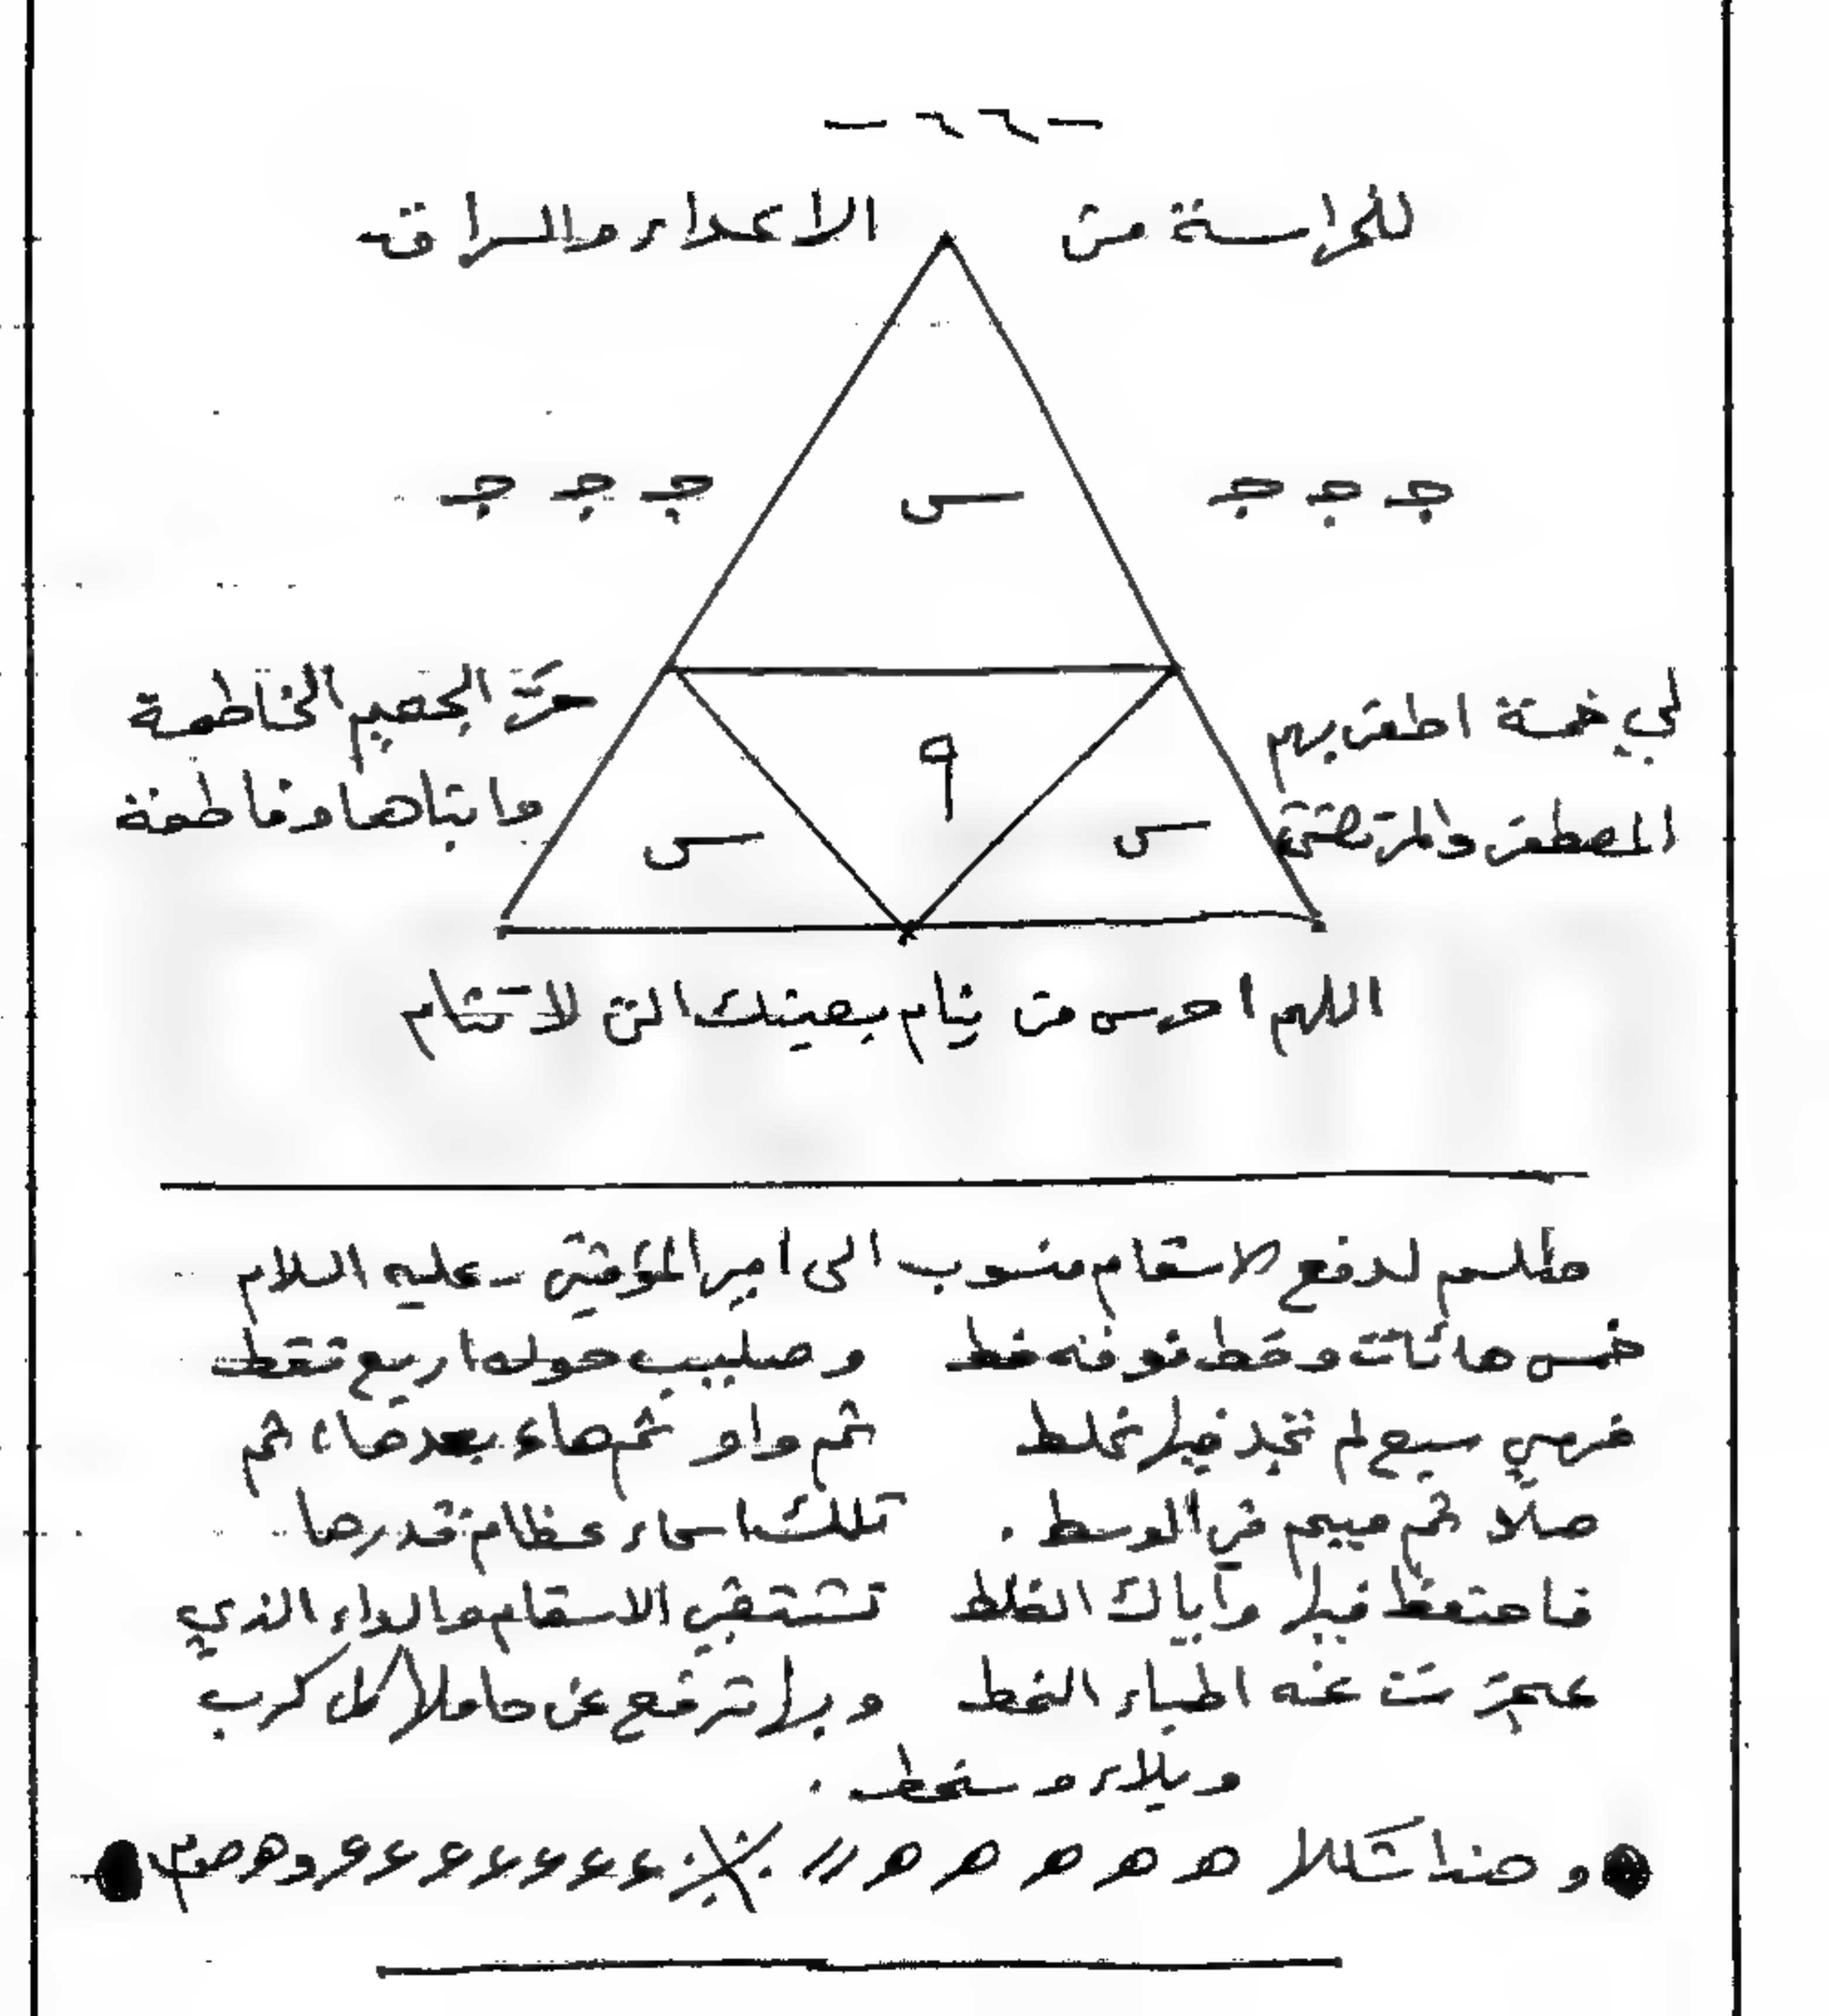 - ٦٦ -
للحراسة من الاعداء والسراق
جـ جـ جـ س جـ جـ جـ
لي خمسة اطفئ بهم حرّ الجحيم الحاطمة
٩
المصطفى والمرتضى وابناها وفاطمة
س س
اللهم احرسى من ينام بعينك التى لا تنام
طلسم لدفع الاسقام منسوب الى امير المؤمنين - عليه السلام
خمس هائات وخط فوقه خط وصليب حوله اربع نقط
فهي سبع لم تجد فيها غلط ثم واو ثم هاء بعدها ثم
صاد ثم ميم في الوسط . تلك اسماء عظام قدرها
فاحتفظ فيها واياك الغلط تشتفي الاسقام والداء الذي
عجزت عنه اطباء النمط وبها ترفع عن حاملها كل كرب
وبلاء وسخط .
وهذا شكلها ه ه ه ه ه // ⁜ ء ء ء ء ء ء ء و ه صم